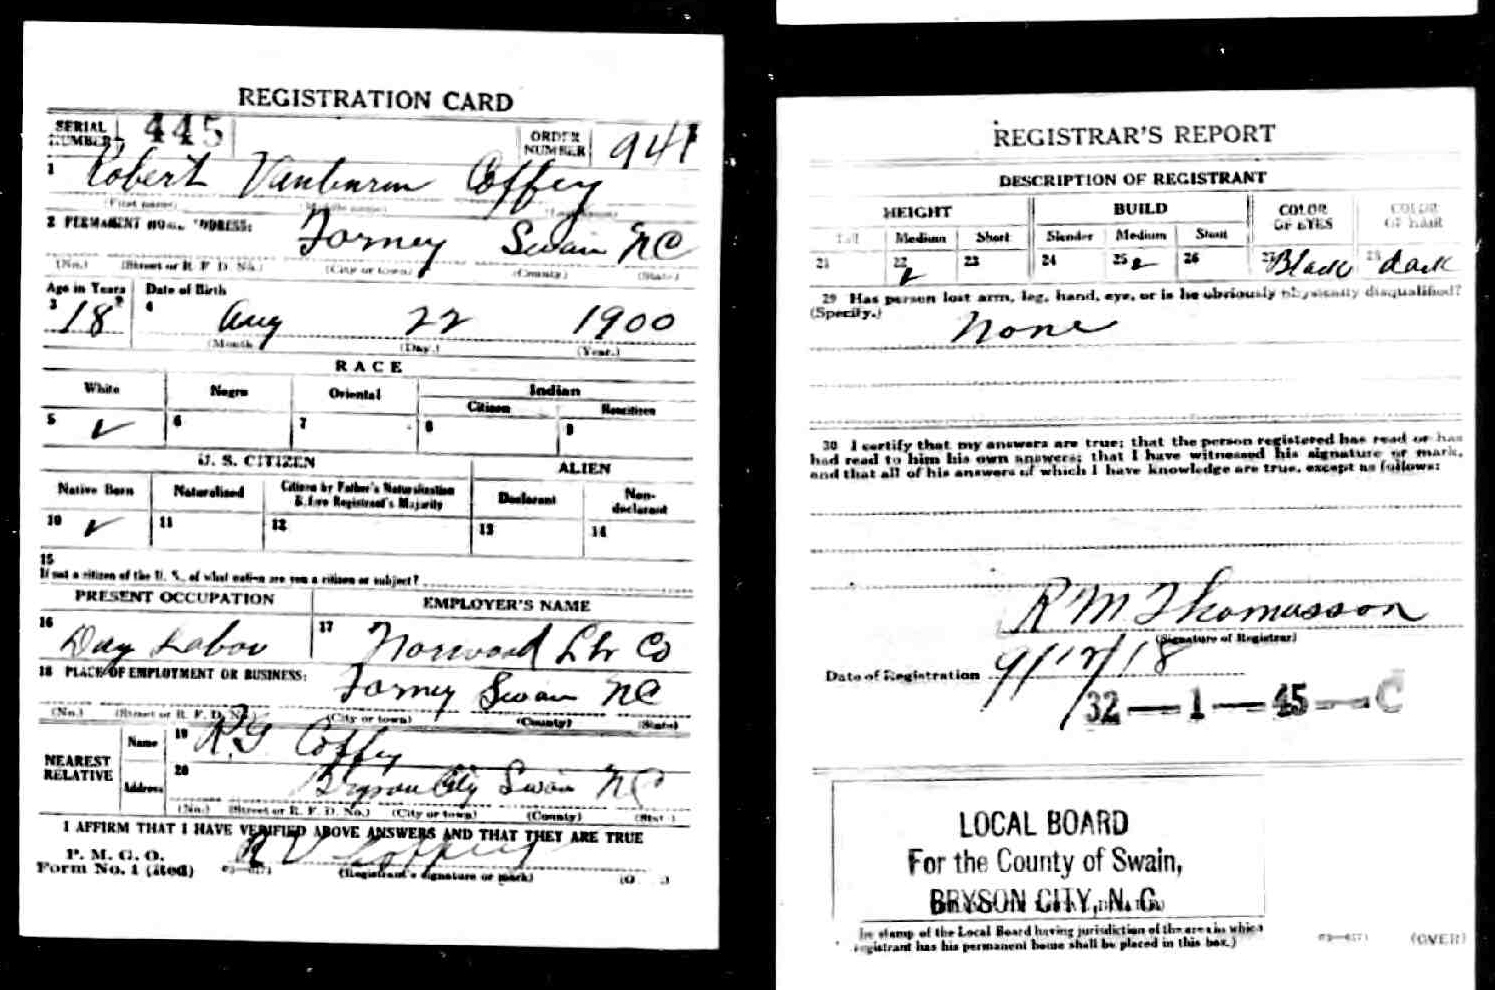 REGISTRATION CARD
SERIAL NUMBER 445 ORDER NUMBER 941
1 Robert Vanburen Coffey
(First name) (Middle name) (Last name)
2 PERMANENT HOME ADDRESS: Forney Swain NC
(No.) (Street or R. F. D. No.) (City or town) (County) (State)
Age in Years Date of Birth
3 18 4 Aug 22 1900
(Month) (Day.) (Year.)
RACE
White Negro Oriental Indian
Citizen Noncitizen
5 ✓ 6 7 8 9
U. S. CITIZEN ALIEN
Native Born Naturalized Citizen by Father's Naturalization Before Registrant's Majority Declarant Non-declarant
10 ✓ 11 12 13 14
15
If not a citizen of the U. S., of what nation are you a citizen or subject?
PRESENT OCCUPATION EMPLOYER'S NAME
16 Day Labor 17 Norwood Lbr Co
18 PLACE OF EMPLOYMENT OR BUSINESS: Forney Swain NC
(No.) (Street or R. F. D. No.) (City or town) (County) (State)
NEAREST RELATIVE Name 19 R.G. Coffey
Address 20 Bryson City Swain NC
(No.) (Street or R. F. D. No.) (City or town) (County) (State)
I AFFIRM THAT I HAVE VERIFIED ABOVE ANSWERS AND THAT THEY ARE TRUE
P. M. G. O.
Form No. 1 (Red) R V Coffey
(Registrant's signature or mark)
REGISTRAR'S REPORT
DESCRIPTION OF REGISTRANT
HEIGHT BUILD COLOR OF EYES COLOR OF HAIR
Tall Medium Short Slender Medium Stout
21 22 ✓ 23 24 25 ✓ 26 27 Black 28 dark
29 Has person lost arm, leg, hand, eye, or is he obviously physically disqualified?
(Specify.) None
30 I certify that my answers are true; that the person registered has read or has
had read to him his own answers; that I have witnessed his signature or mark,
and that all of his answers of which I have knowledge are true, except as follows:
R M Thomasson
(Signature of Registrar)
Date of Registration 9/12/18
32—1—45—C
LOCAL BOARD
For the County of Swain,
BRYSON CITY, N. C.
stamp of the Local Board having jurisdiction of the area in which
registrant has his permanent home shall be placed in this box.)
(OVER)